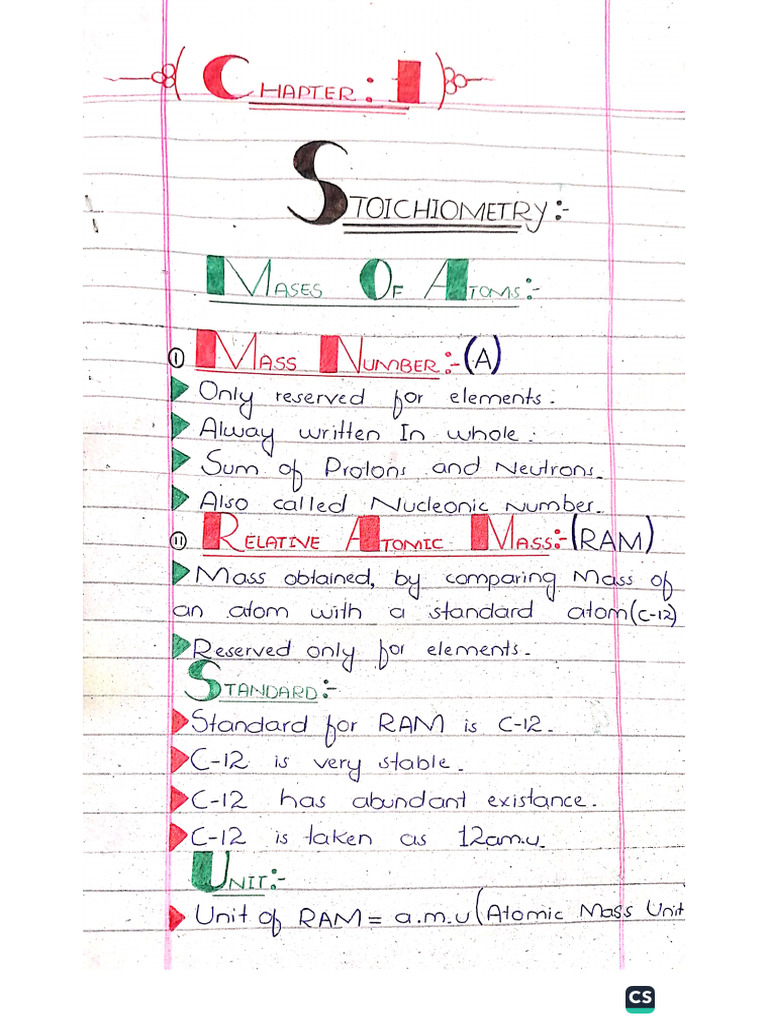 CHAPTER: 1
STOICHIOMETRY:-
MASES OF ATOMS:-
(I) MASS NUMBER:-(A)
Only reserved for elements.
Alway written In whole.
Sum of Protons and Neutrons.
Also called Nucleonic Number.
(II) RELATIVE ATOMIC MASS:-(RAM)
Mass obtained, by comparing Mass of
an atom with a standard atom(C-12)
Reserved only for elements.
STANDARD:-
Standard for RAM is C-12.
C-12 is very stable.
C-12 has abundant existance.
C-12 is taken as 12am.u.
UNIT:-
Unit of RAM = a.m.u(Atomic Mass Unit
CS